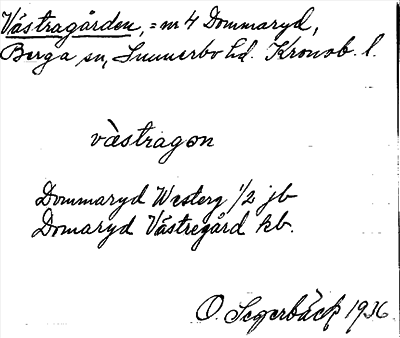 Västragården, = nr 4 Dommaryd,
Berga sn, Sunnerbo hd. Kronob. l.
västragon
Dommaryd Westerg 1/2 jb
Domaryd Västregård kb.
O. Segerbäck 1936